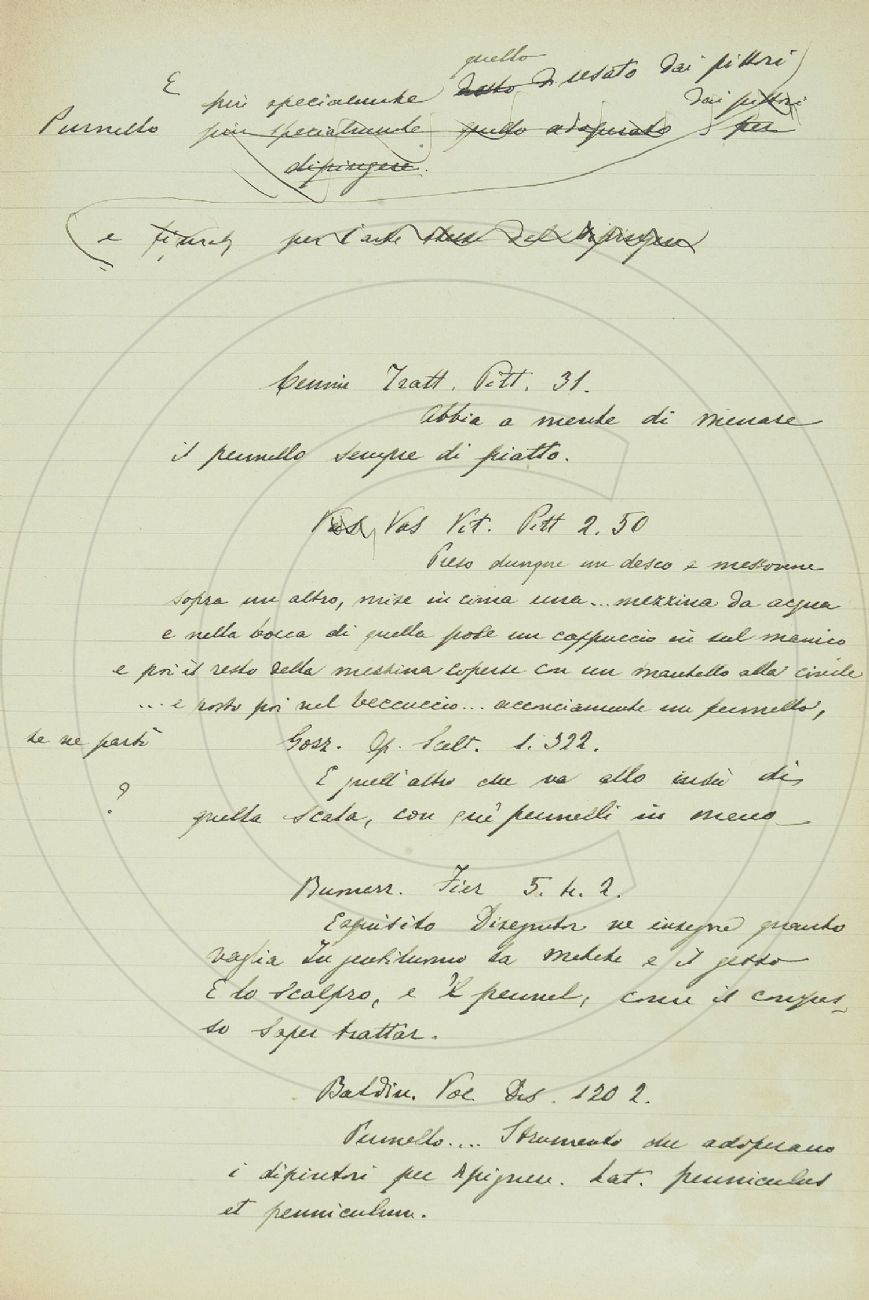 quello
E più specialmente detto di usato dai pittori
dai pittori
Pennello più specialmente quello adoperato per
dipingere.
e figurat. per l'arte stessa del dipingere
Cennin Tratt. Pitt. 31.
Abbia a mente di menare
il pennello sempre di piatto.
Vas Vas Vit. Pitt 2. 50
Preso dunque un desco e messovene
sopra un altro, mise in cima una... mezzina da acqua
e nella bocca di quella pose un cappuccio in sul manico
e poi il resto della mezzina coperse con un mantello alla civile
... e posto poi nel beccuccio... acconciamente un pennello,
se ne partì
Gozz. Op. Scelt. 1. 322.
E quell'altro che va allo insù di
?
quella scala, con que' pennelli in mano
Buonarr. Fier 5. 4. 2.
Esquisito Disegnator ne insegne quanto
vaglia In gentiluomo la matita e il gesso
E lo scalpro, e 'l pennel, come il compas-
so saper trattar.
Baldin. Voc. Dis. 120 2.
Pennello.... Strumento che adoperano
i dipintori per dipignere. Lat. penniculus
et penniculum.